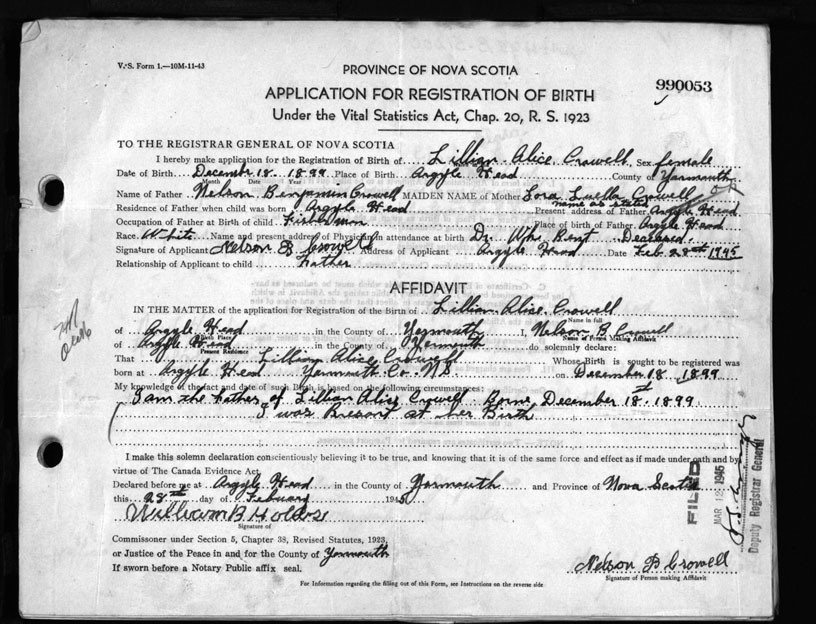 V.S. Form 1.—10M-11-43
PROVINCE OF NOVA SCOTIA
990053
APPLICATION FOR REGISTRATION OF BIRTH
Under the Vital Statistics Act, Chap. 20, R. S. 1923
TO THE REGISTRAR GENERAL OF NOVA SCOTIA
I hereby make application for the Registration of Birth of Lillian Alice Crowell, Sex female
Date of Birth December 18 1899 Place of Birth Argyle Head County of Yarmouth
Month Date Year
Name of Father Nelson Benjamin Crowell MAIDEN NAME of Mother Lora Luella Crowell
name as stated
Residence of Father when child was born Argyle Head Present address of Father Argyle Head
Occupation of Father at Birth of child Fisherman Place of birth of Father Argyle Head
Race White Name and present address of Physician in attendance at birth Dr. Wm Bent Deceased
Signature of Applicant Nelson B Crowell Address of Applicant Argyle Head Date Feb 28th 1945
Relationship of Applicant to child Father
AFFIDAVIT
IN THE MATTER of the application for Registration of the Birth of Lillian Alice Crowell
Name in full
of Argyle Head in the County of Yarmouth I, Nelson B Crowell
Birth Place Name of Person Making Affidavit
of Argyle Head in the County of Yarmouth do solemnly declare:
Present Residence
That Lillian Alice Crowell Whose Birth is sought to be registered was
born at Argyle Head Yarmouth Co. N.S on December 18 1899
My knowledge of the fact and date of such Birth is based on the following circumstances:
I am the Father of Lillian Alice Crowell Borne, December 18th 1899
I was Present at her Birth
I make this solemn declaration conscientiously believing it to be true, and knowing that it is of the same force and effect as if made under oath and by
virtue of The Canada Evidence Act.
Declared before me at Argyle Head in the County of Yarmouth and Province of Nova Scotia
this 28th day of Febuary 1945
William B Holds
Signature of
Commissoner under Section 5, Chapter 38, Revised Statutes, 1923,
or Justice of the Peace in and for the County of Yarmouth
If sworn before a Notary Public affix seal.
Nelson B Crowell
Signature of Person making Affidavit
For Information regarding the filling out of this Form, see Instructions on the reverse side
FILED
MAR 1945
Deputy Registrar General